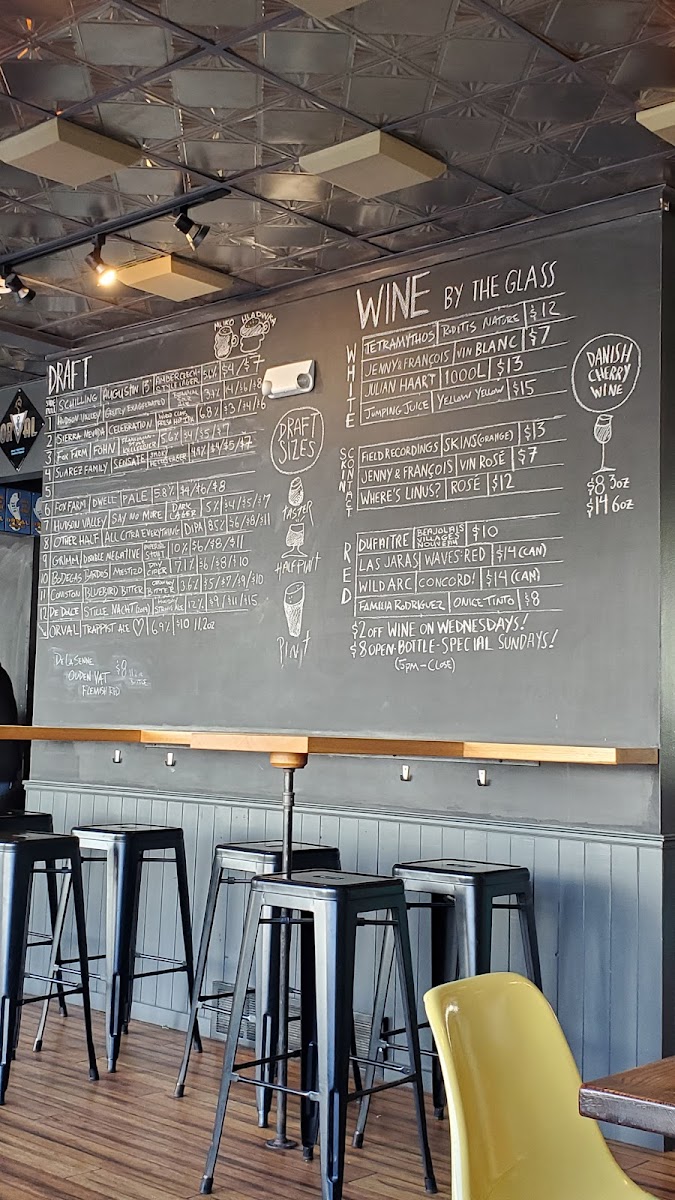 DRAFT
MLIKO HLADINKA
SIDE PULL SCHILLING AUGUSTIN 13° AMBER CZECH-STYLE LAGER 5% $4/$7
1 HUDSON VALLEY
2 SIERRA NEVADA CELEBRATION FRESH HOP IPA 6.8% $3/$4/$6
3 FOX FARM FOHN KELLERBIER 5.6% $4/$5/$7
4 SUAREZ FAMILY SENSATE LAGER $4/$5/$7
5
6 FOX FARM DWELL PALE 5.8% $4/$6/$8
7 HUDSON VALLEY SAY NO MORE DARK LAGER 5% $4/$5/$7
8 OTHER HALF ALL CITRA EVERYTHING DIPA 8.5% $6/$8/$11
9 GRIMM DOUBLE NEGATIVE IMPERIAL STOUT 10% $6/$8/$11
10 BODEGAS BANDOS MESTIZO DRY CIDER 7.1% $6/$8/$10
11 COVASTON BLUEBIRD BITTER BITTER 3.6% $5/$7/$9/$10
12 DE DOLLE STILLE NACHT 12% $9/$11/$15
ORVAL TRAPPIST ALE ♡ 6.9% $10 11.2oz
DE LA SENNE
OUDEN VAT $8
FLEMISH RED
DRAFT
SIZES
TASTER
HALFPINT
PINT
WINE BY THE GLASS
WHITE
TETRAMYTHOS RODITIS NATURE $12
JENNY & FRANCOIS VIN BLANC $7
JULIAN HAART 1000L $13
JUMPING JUICE YELLOW YELLOW $15
SCKONNTACT
FIELD RECORDINGS SKINS (ORANGE) $13
JENNY & FRANÇOIS VIN ROSÉ $7
WHERE'S LINUS? ROSÉ $12
RED
DUFAITRE BEAJOLAIS VILLAGES NOUVEAU $10
LAS JARAS WAVES RED $14 (CAN)
WILD ARC CONCORD! $14 (CAN)
FAMILIA RODRIGUEZ ONICE TINTO $8
$2 OFF WINE ON WEDNESDAYS!
$8 OPEN-BOTTLE-SPECIAL SUNDAYS!
(5PM-CLOSE)
DANISH
CHERRY
WINE
$8 3oz
$14 6oz
ORVAL